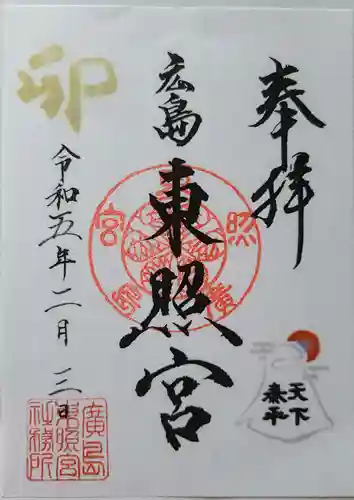 奉拝
天下
泰平
広島
東照宮
卯
令和五年二月三日
廣島
東照宮
社務所